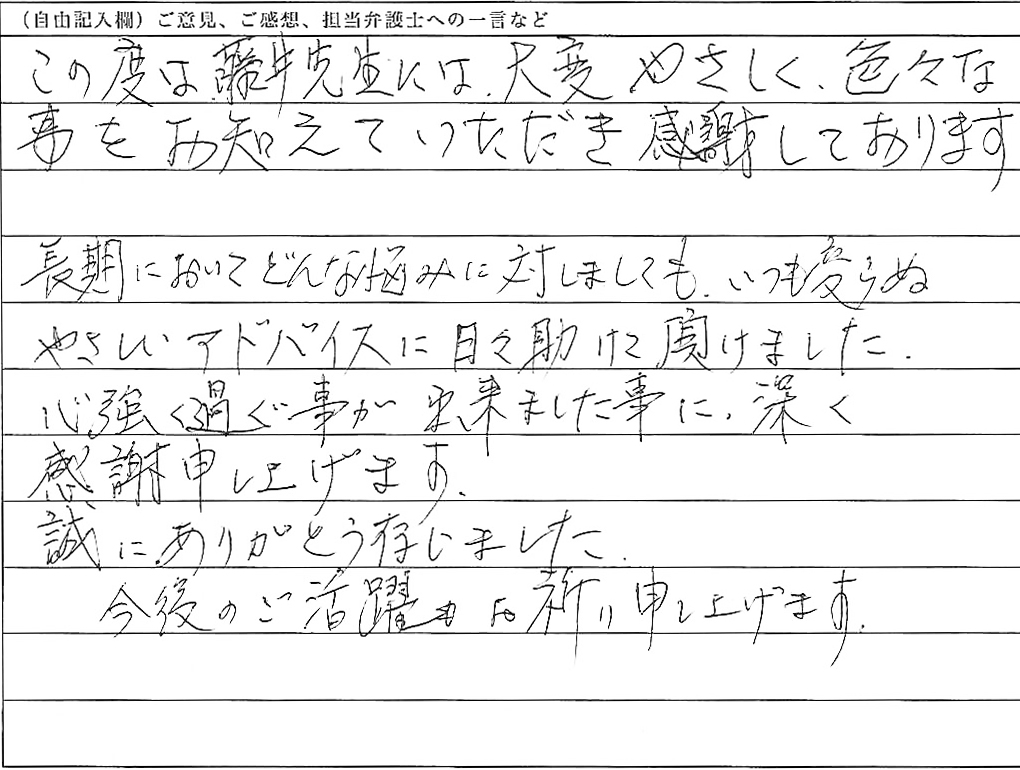 （自由記入欄）ご意見、ご感想、担当弁護士への一言など
この度は藤井先生には、大変やさしく、色々な
事をお知えていただき感謝しております
長期においてどんな悩みに対しましても、いつも変らぬ
やさしいアドバイスに日々助けて頂けました。
心強く過ぐ事が出来ました事に、深く
感謝申し上げます。
誠に、ありがとう存じました。
今後のご活躍もお祈り申し上げます。